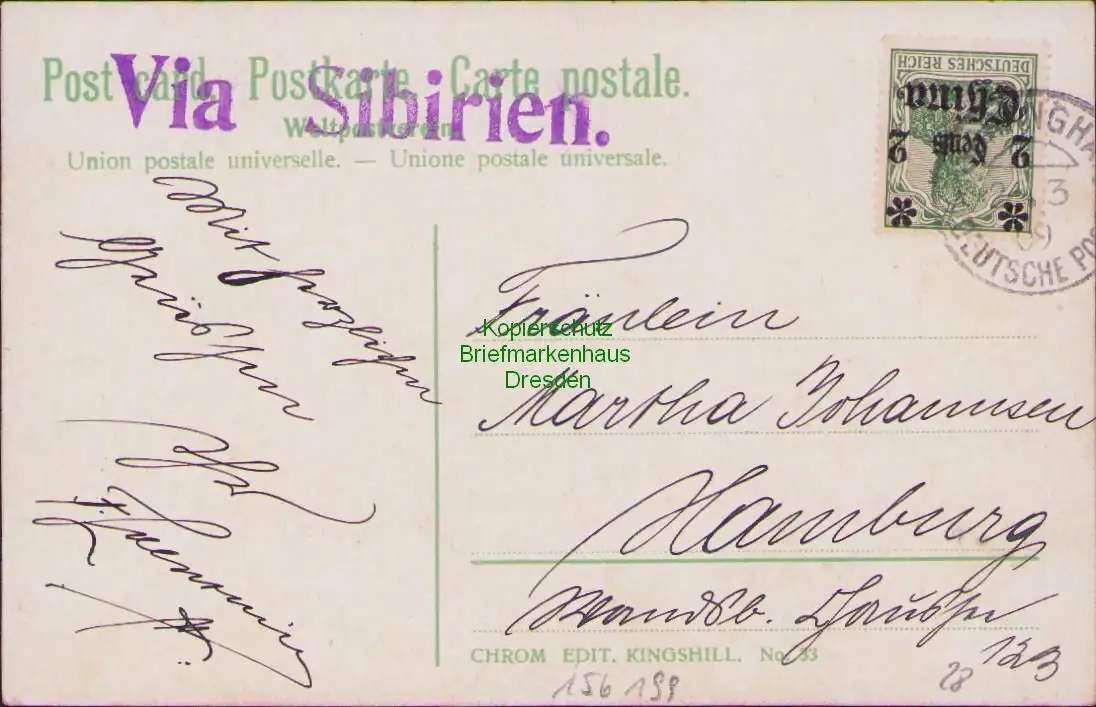 Post card. Postkarte. Carte postale.
Via Sibirien.
Weltpostverein
Union postale universelle. — Unione postale universale.
DEUTSCHES REICH
China
2 Cents 2
DEUTSCHE POS
09
Mit herzlichen
Grüßen
Fräulein
Kopierschutz
Briefmarkenhaus
Dresden
Martha Johannsen
Hamburg
Wandsb. Chaussee
123
CHROM EDIT. KINGSHILL. No. 33
28
156 199